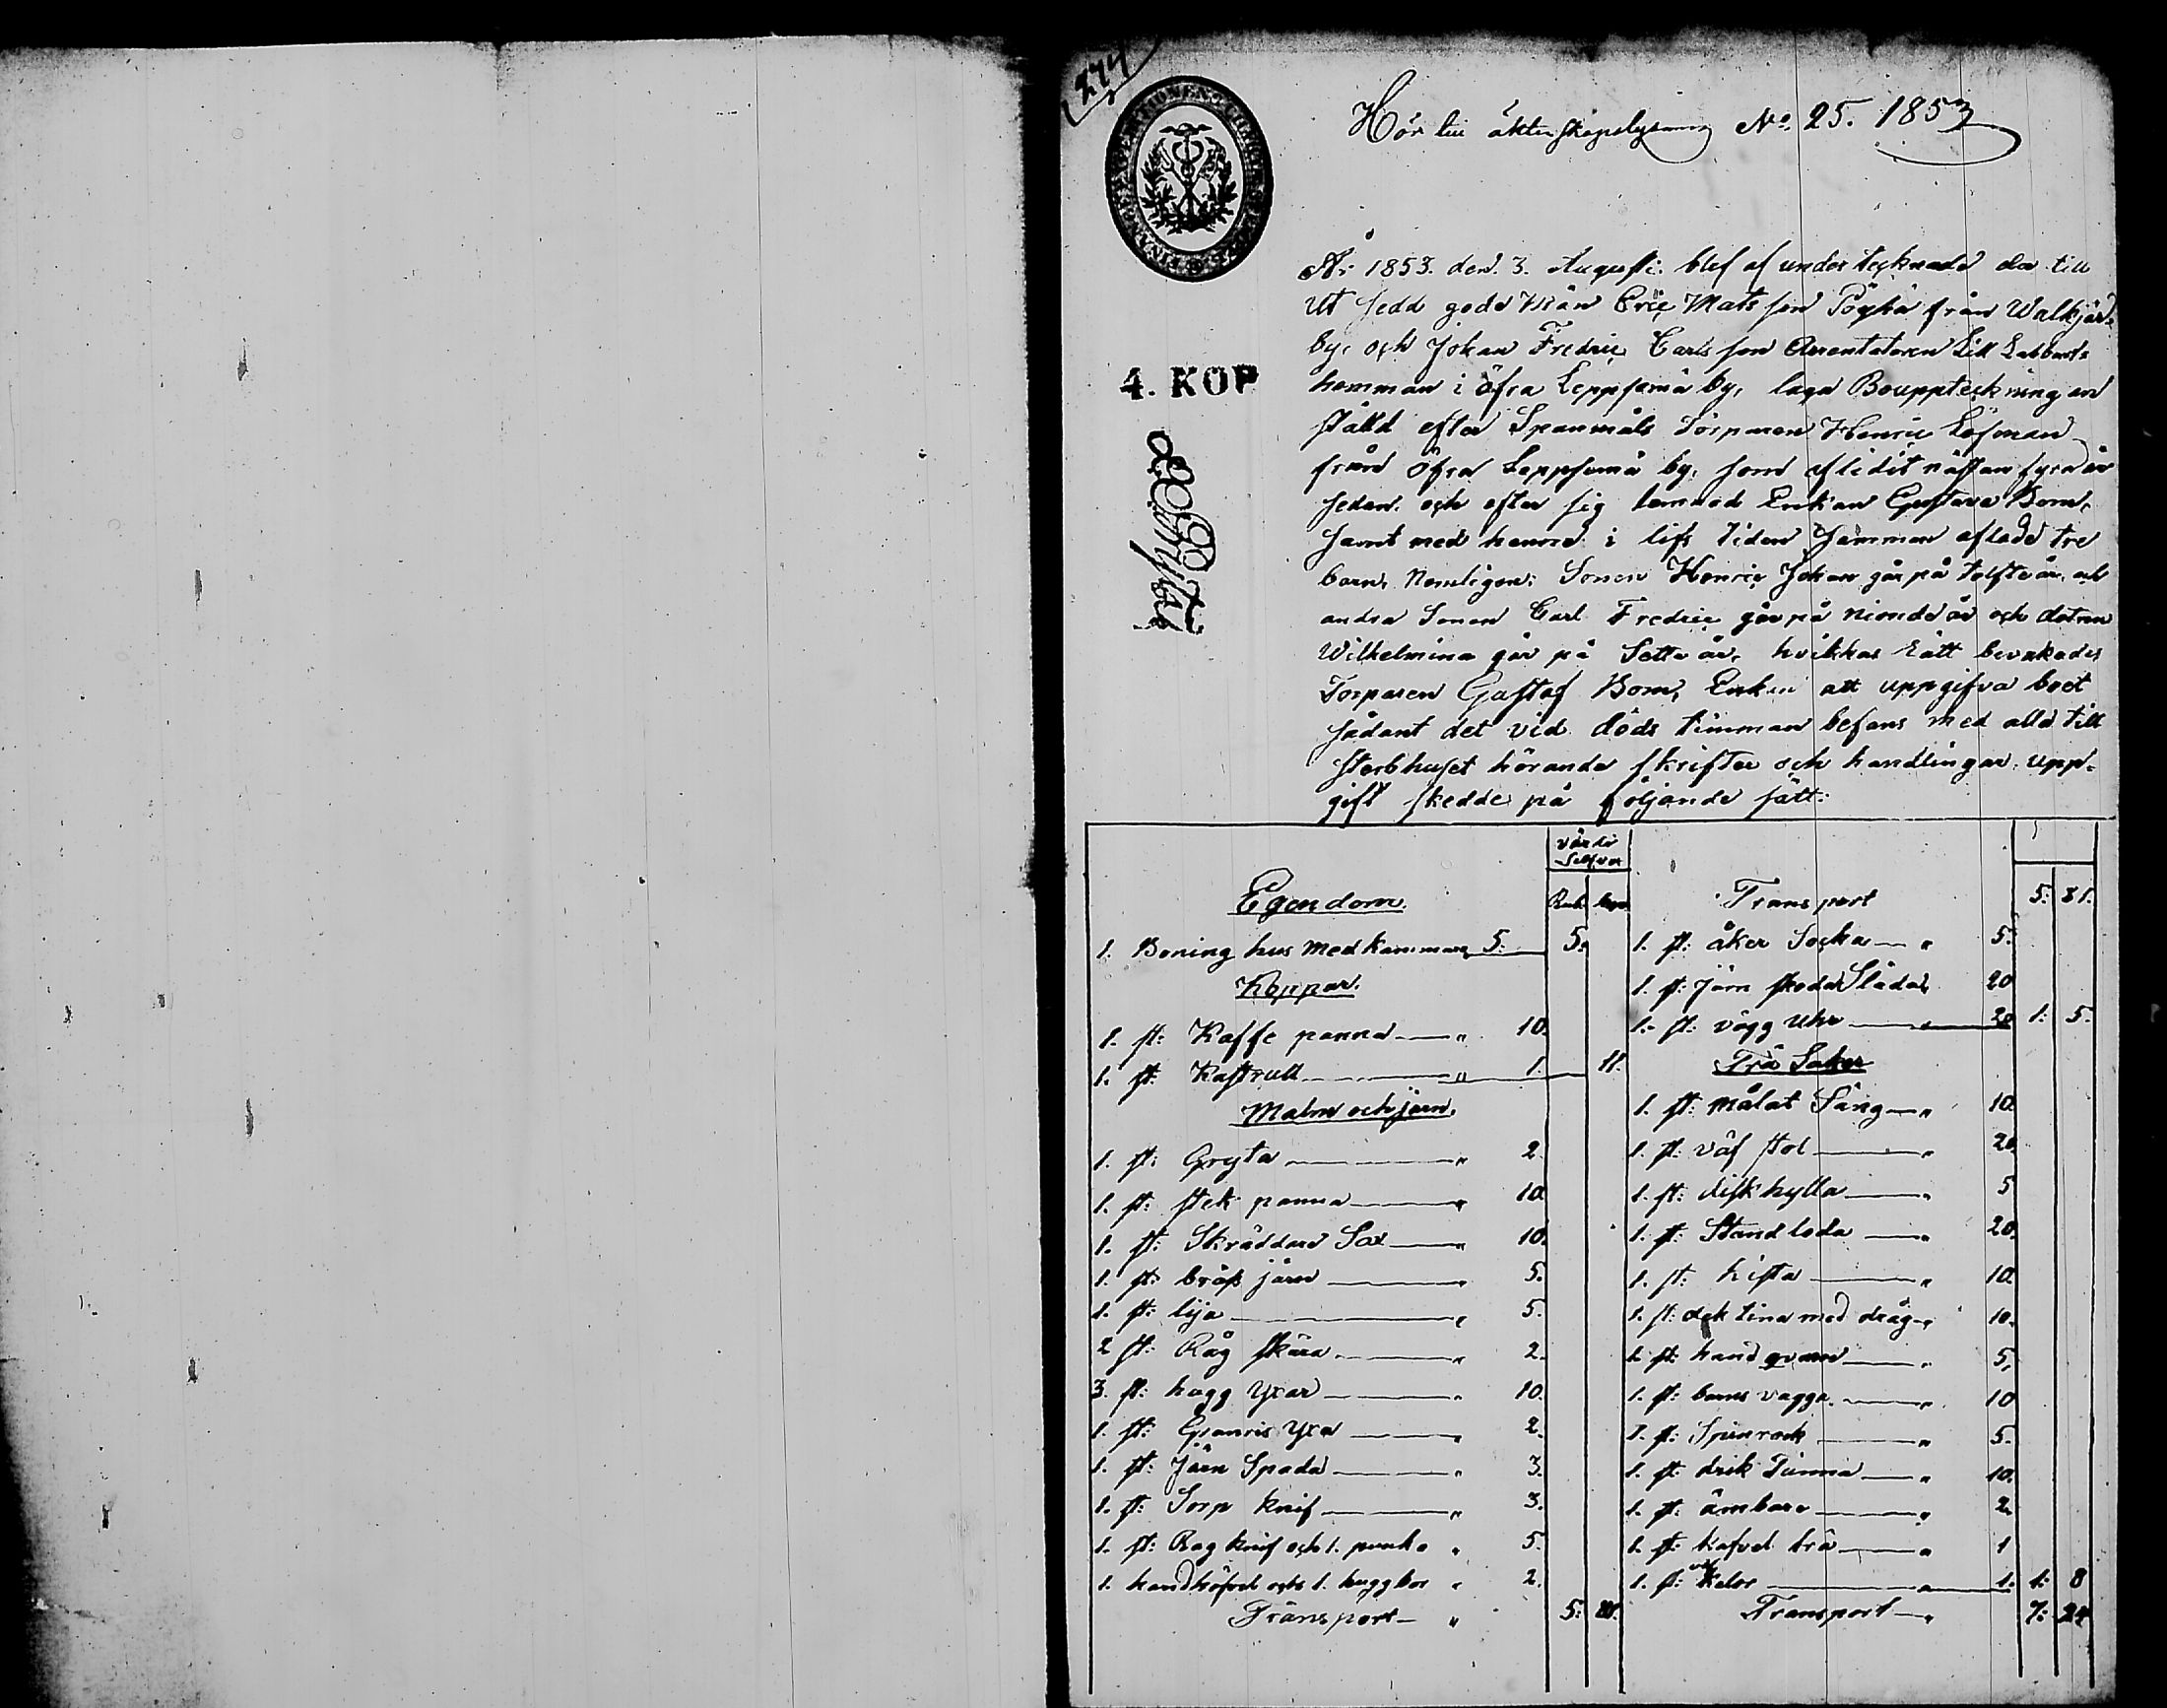 274
Hör till äktenskapslysning No. 25. 1853
År 1853. den. 3. Augusti. blef af undertecknade der till
ut sedd gode Män Eric Mats son Pöykä från Walkjär-
by, och Johan Fredric Carls son Arrentatoren till Labbarts
4. KOP
hemman i öfra Leppsemä by, laga Bouppteckning an
ställd efter Spanmåls Torparen Henric Löfman
från öfra Leppsemä by, som aflidit nästan fyra år
sedan. och efter sig lemnad Enkan Gustava Bom,
samt med henne i lifs tiden samman aflade tre
barn, Nemligen: Sonen Henric Johan går på tolfte år, och
andra Sonen Carl Fredric går på nionde år och dotren
Wilhelmina går på Sette år, hvilkas rätt bevakades
Torparen Gustaf Bom, Enkan att uppgifva boet
sådant det vid döds timman befans med alla till
sterbhuset hörande skrifter och handlingar, upp-
gift skedde på följande sätt:
värde
Silfver
Egendom.
Rub. kop.
1. Boning hus med kammare 5. 5.
Koppar.
1. st: Kaffe panna — " 10.
1. st: Kastrull — " 1. 11.
Malm och järn.
1. st: Gryta — " 2.
1. st: stek panna — " 10.
1. st: Skräddare Sax — " 10.
1. st: järn — " 5.
1. st: lija — " 5.
2 st: Råg skära — " 2.
3. st: hugg Yxar — " 10.
1. st: Granris Yxa — " 2.
1. st: Järn Spada — " 3.
1. st: Sorp knif — " 3.
1. st: Rag knif och 1. " 5.
1. handhöfvel och 1. huggbor " 2.
Transport — " 5:
Transport 5: 81.
1. st: åker Socka — " 5.
1. st: järn skodd Släda 20
1. st: vägg Uhr — 20 1: 5.
Trä Saker
1. st: målat Säng — " 10.
1. st: väf stol — " 20
1. st: disk hylla — " 5
1. st: Stand loda — " 20.
1. st: kista — " 10.
1. st: dek tina med dråg — " 10.
1. st: hand qvarn — " 5.
1. st: barns vagga — " 10
1. st: Spinrock — " 5.
1. st: drik Tunna — " 10.
1. st: ämbare — " 2.
1. st: kafvel trä — " 1
1. st: — " 1. 1: 8
Transport — " 7: 24